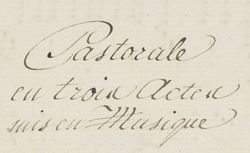 Pastorale
en trois Actes
mis en Musique